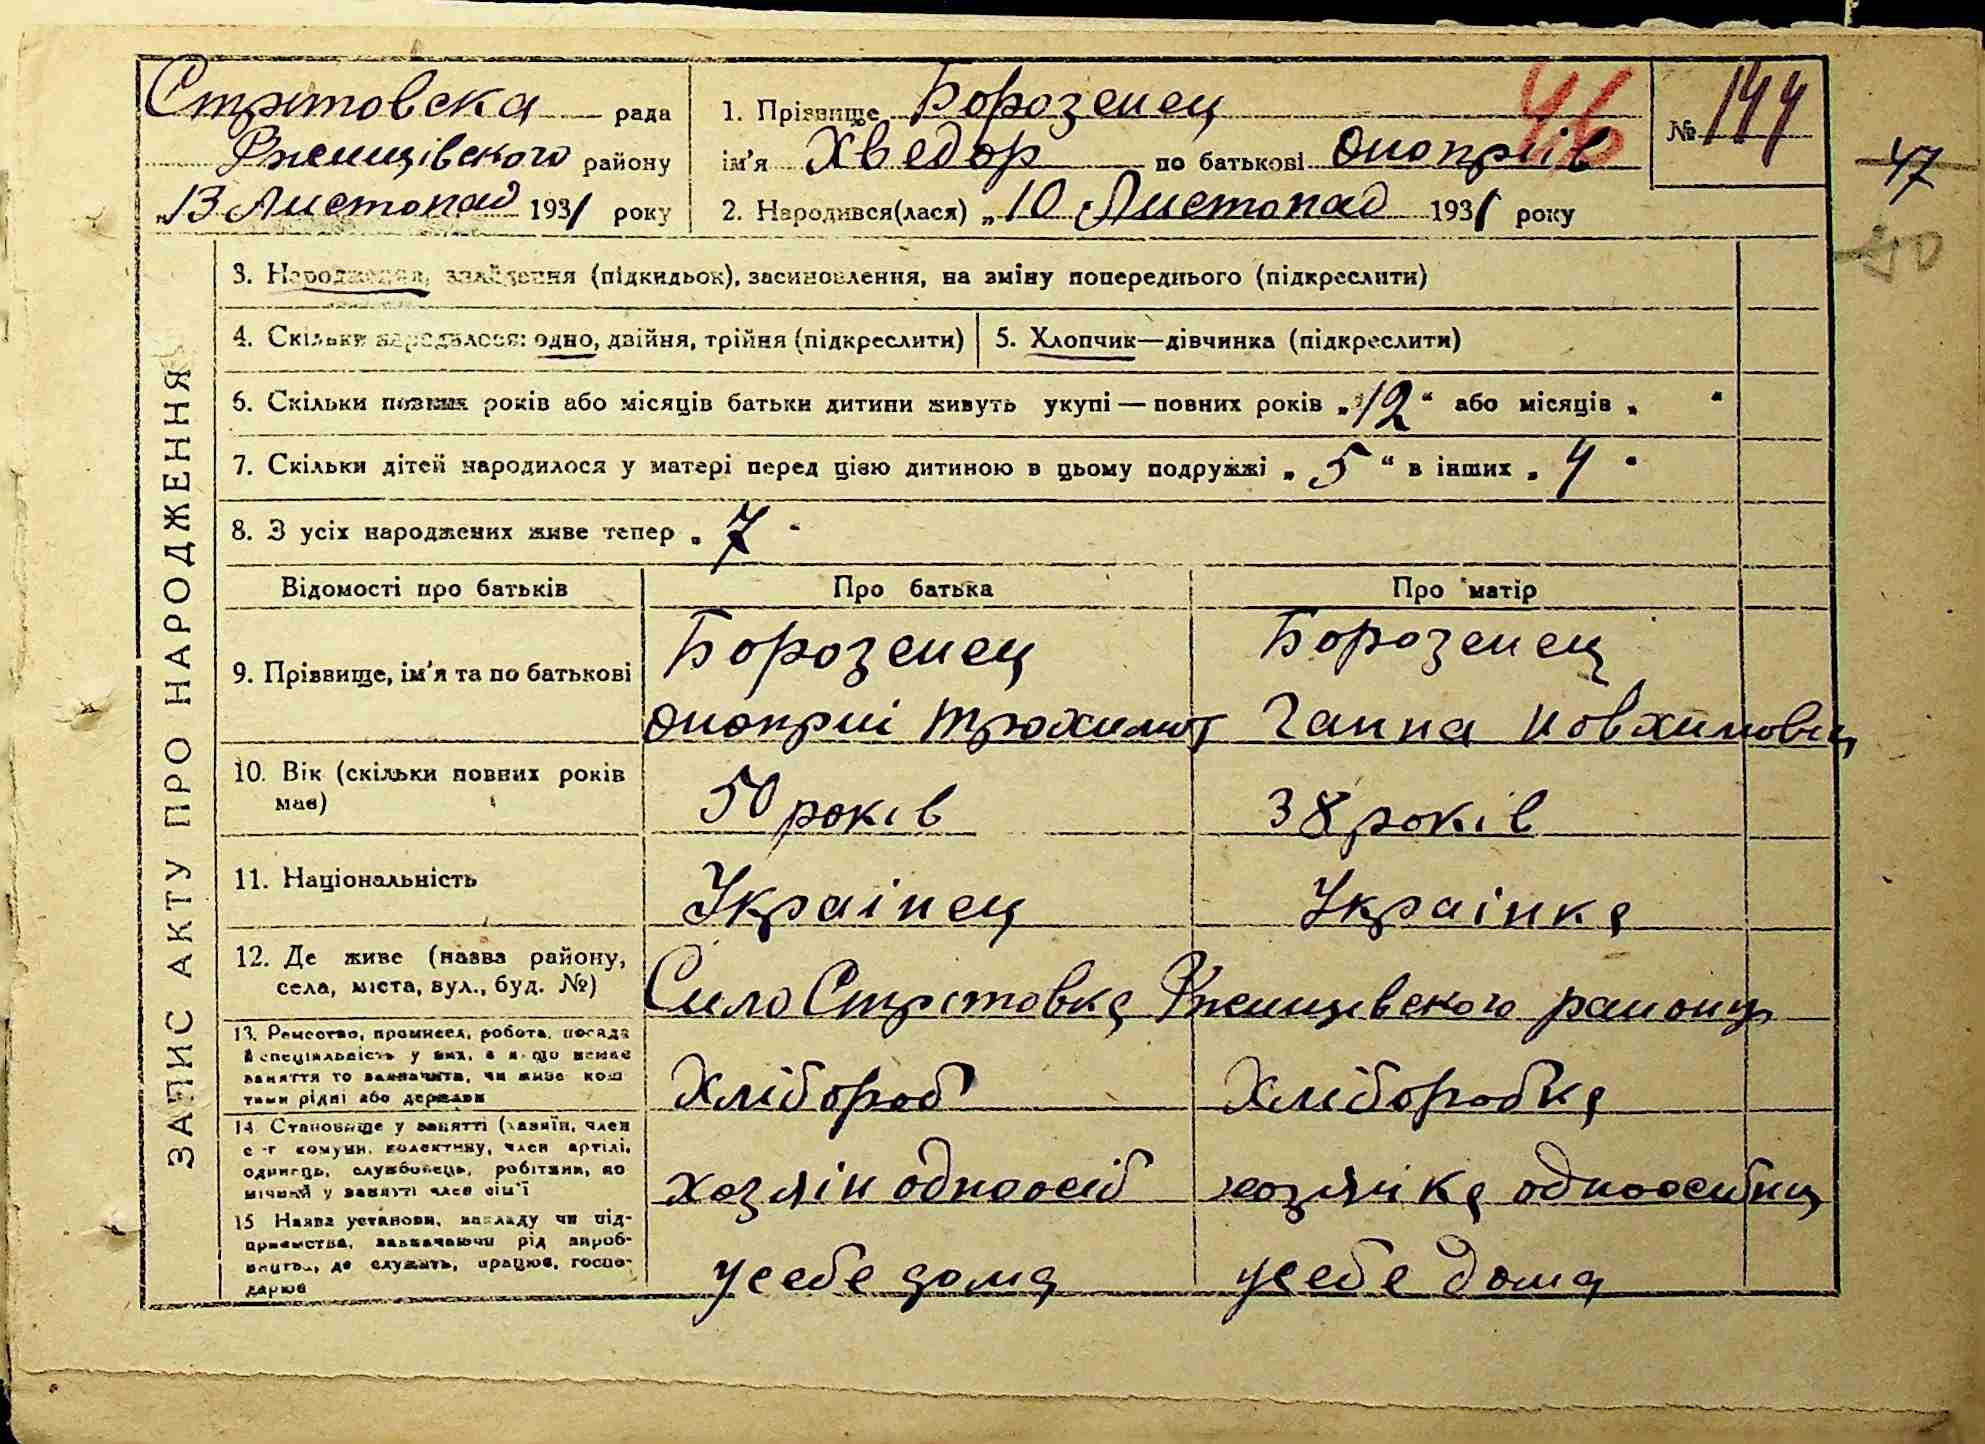 Стритовска рада
Ржищівского району
„13 Листопад 1931 року
1. Прізвище Борозенец
ім'я Хведор по батькові Оноприів
2. Народився(лася) „10 Листопад 1931 року
46
№ 144
47
ЗАПИС АКТУ ПРО НАРОДЖЕННЯ
3. Народження, знайдення (підкидьок), засиновлення, на зміну попереднього (підкреслити)
4. Скільки народилося: одно, двійня, трійня (підкреслити)
5. Хлопчик—дівчинка (підкреслити)
6. Скільки повних років або місяців батьки дитини живуть укупі — повних років „12“ або місяців „ “
7. Скільки дітей народилося у матері перед цією дитиною в цьому подружжі „5“ в інших „4“
8. З усіх народжених живе тепер „7“
Відомості про батьків Про батька Про матір
9. Прізвище, ім'я та по батькові Борозенец Борозенец
Оноприі Трохимов Ганна Иовхимовна
10. Вік (скільки повних років
має) 50 років 38 років
11. Національність Украінец Украінка
12. Де живе (назва району,
села, міста, вул., буд. №) Сило Стритовка Ржищевского району
13. Ремество, промисел, робота, посада
й спеціяльність у них, а якщо немає
заняття то зазначити, чи живе кош
тами рідні або держави Хлібороб Хліборобка
14. Становище у занятті (хазяїн, член
с.-г комуни, колективу, член артілі,
одинець, службовець, робітник, по
мічний у занятті член сім'ї хозяін одноосіб хозячка одноосибниц
15 Назва установи, закладу чи під-
приємства, зазначаючи рід вироб-
ництва, де служить, працює, госпо-
дарює у себе дома у себе дома